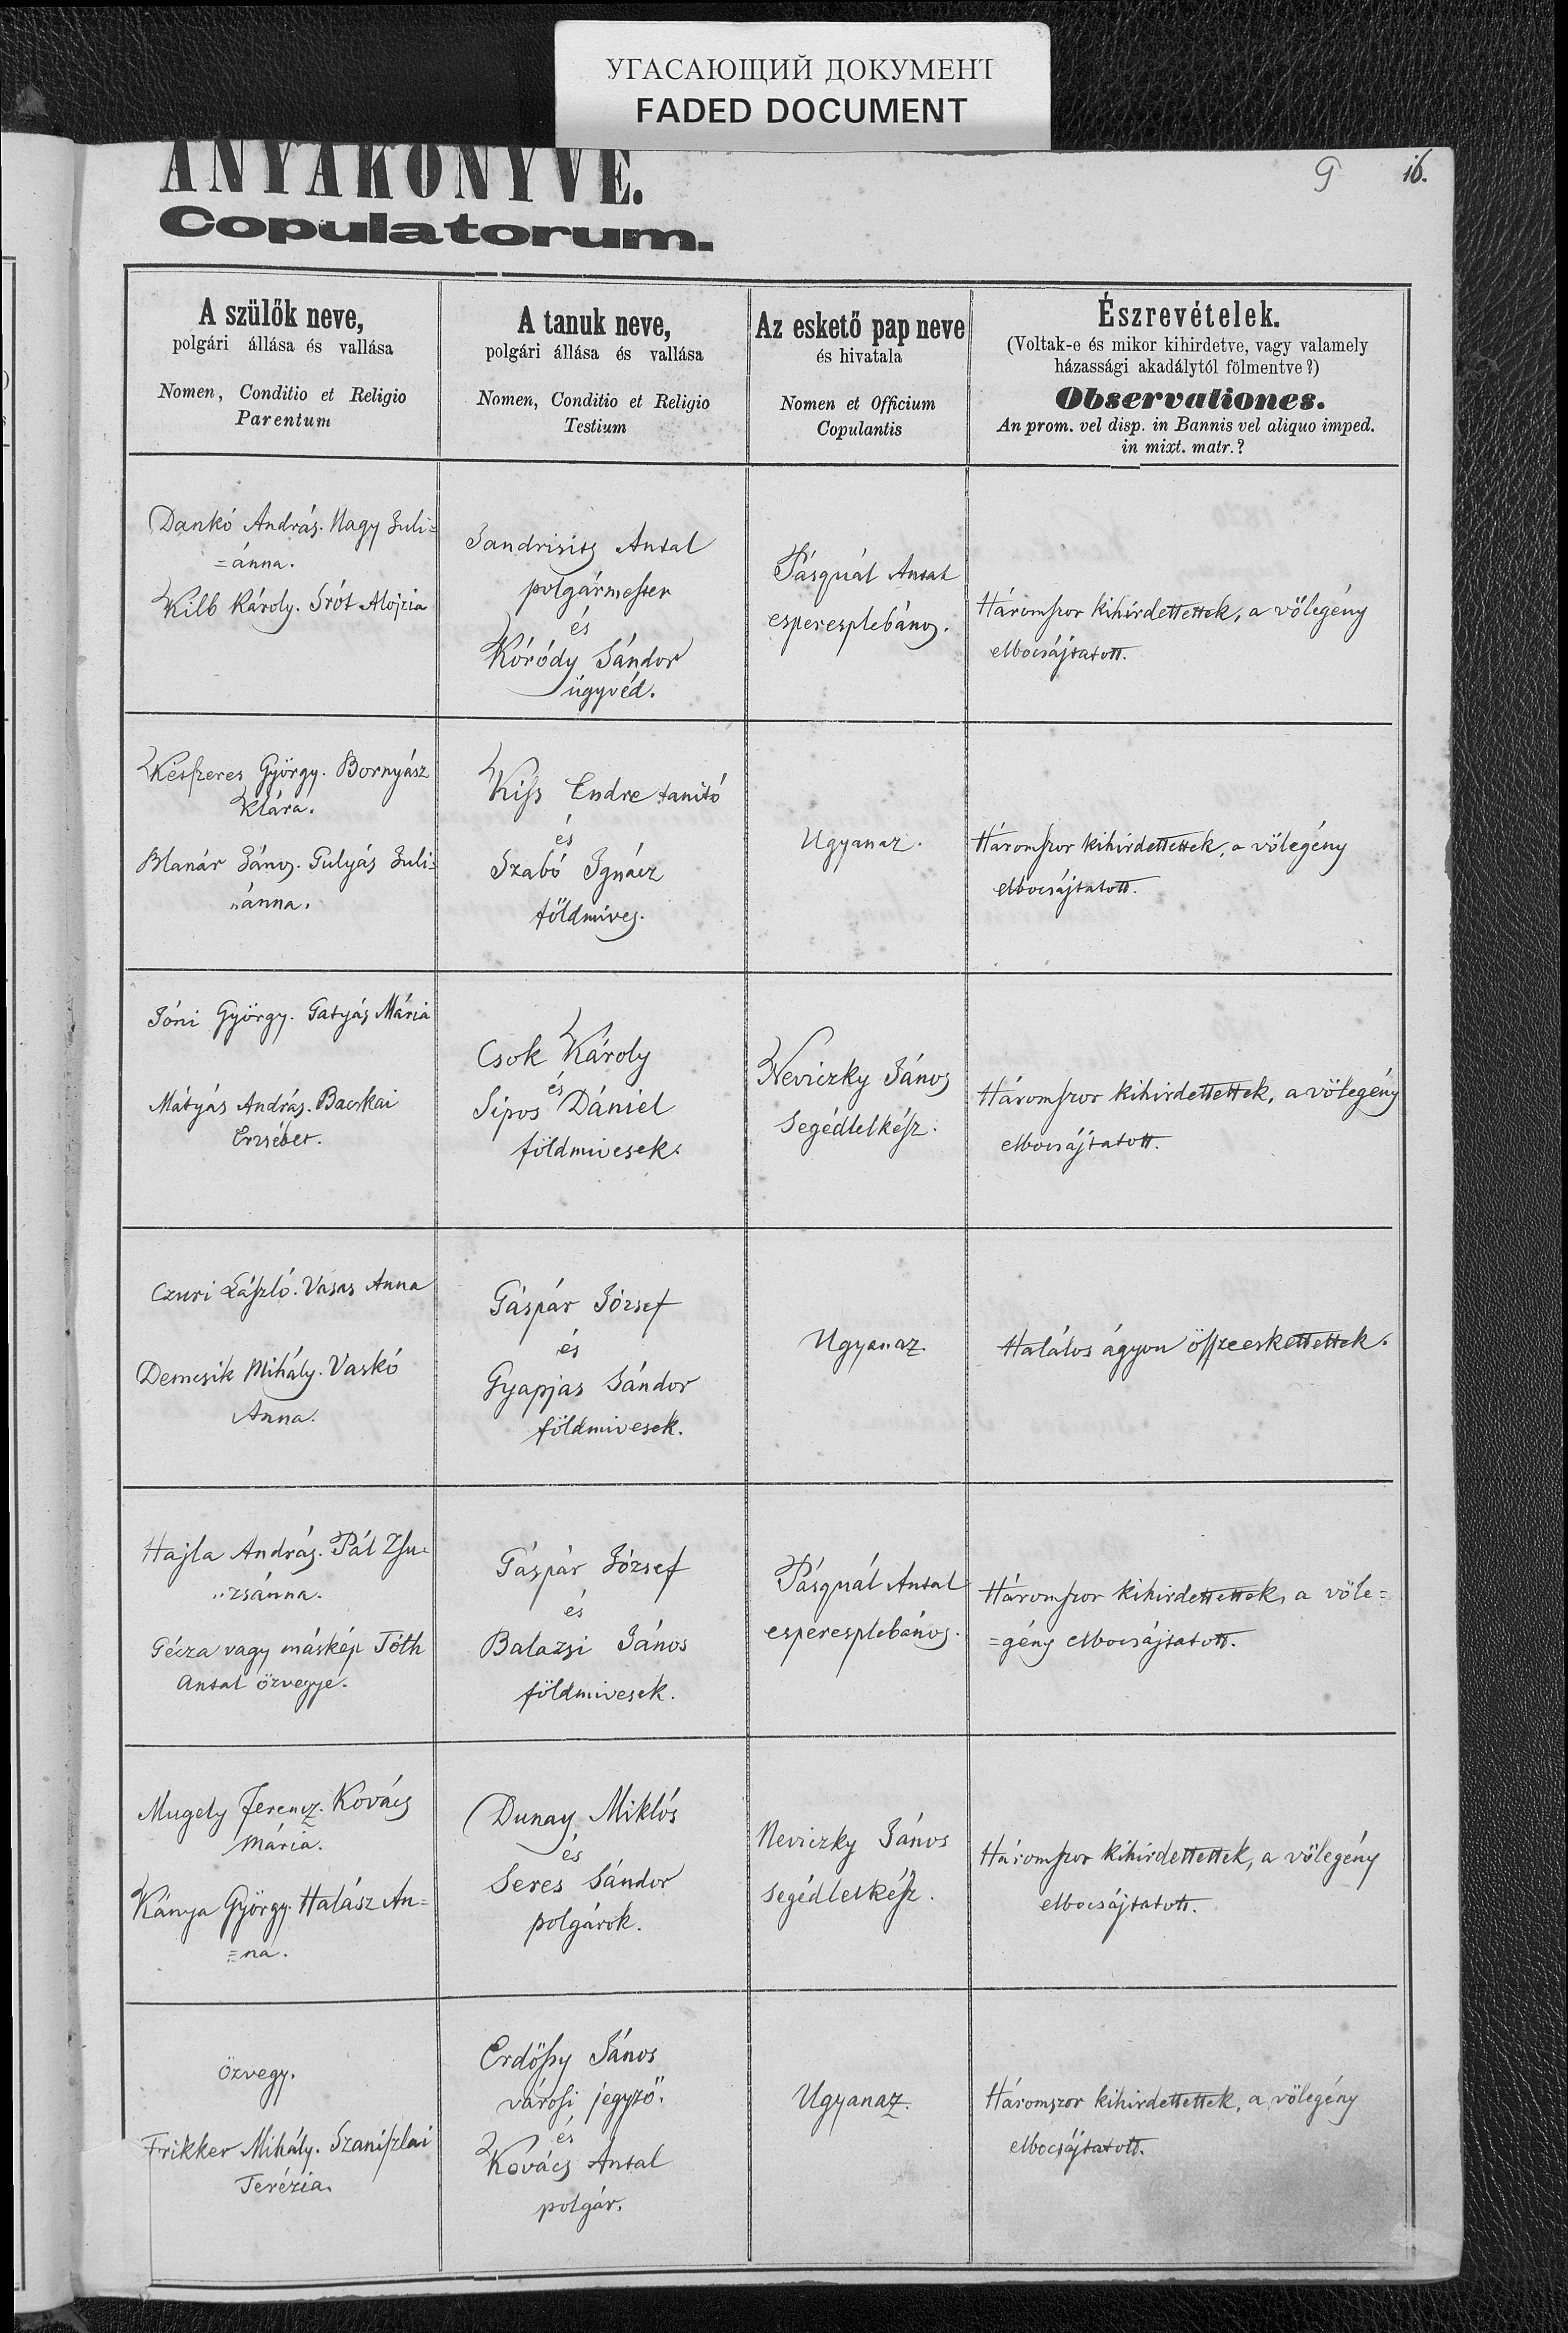 УГАСАЮЩИЙ ДОКУМЕНТ
FADED DOCUMENT
ANYAKÖNYVE.
9 16.
Copulatorum.
A szülők neve,
polgári állása és vallása
Nomen, Conditio et Religio
Parentum
A tanuk neve,
polgári állása és vallása
Nomen, Conditio et Religio
Testium
Az eskető pap neve
és hivatala
Nomen et Officium
Copulantis
Észrevételek.
(Voltak-e és mikor kihirdetve, vagy valamely
házassági akadálytól fölmentve?)
Observationes.
An prom. vel disp. in Bannis vel aliquo imped.
in mixt. matr.?
Dankó András. Nagy Juli=
=ánna.
Kilb Károly. Srót Alojzia
Jandrisits Antal
polgármester
és
Kóródy Sándor
ügyvéd.
Pásquál Antal
esperesplebános.
Háromszor kihirdettettek, a völegény
elbocsájtatott.
Keszeres György. Bornyász
Klára.
Blanár János. Gulyás Juli=
"ánna.
Kiss Endre tanitó
és
Szabó Ignácz
földmives.
Ugyanaz.
Háromszor kihirdettettek, a völegény
elbocsájtatott.
Jóni György. Gatyás Mária
Mátyás András. Bacskai
Erzsébet.
Csok Károly
és
Sipos Dániel
földmivesek.
Neviczky János
Segédlelkész.
Háromszor kihirdettettek, a völegény
elbocsájtatott.
Czuri László. Vasas Anna
Demcsik Mihály. Vaskó
Anna.
Gáspár József
és
Gyapjas Sándor
földmivesek.
Ugyanaz
Halálos ágyon összeeskettettek.
Hajla András. Pál Zsu=
"zsánna.
Gécza vagy máskép Tóth
Antal özvegye.
Gáspár József
és
Balazsi János
földmivesek.
Pásquál Antal
esperesplebános.
Háromszor kihirdettettek, a völe=
=gény elbocsájtatott.
Mugely Ferencz. Kovács
Mária.
Kánya György. Halász An=
=na.
Dunay Miklós
és
Seres Sándor
polgárok.
Neviczky János
segédlelkész.
Háromszor kihirdettettek, a völegény
elbocsájtatott.
Özvegy.
Frikker Mihály. Szaniszlai
Terézia.
Erdőssy János
városi jegyző.
és
Kovács Antal
polgár.
Ugyanaz.
Háromszor kihirdettettek, a völegény
elbocsájtatott.